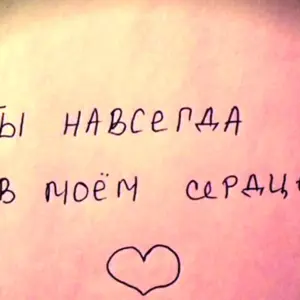 ТЫ НАВСЕГДА
В МОЁМ СЕРДЦЕ